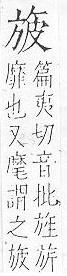 旇
篇夷切音批旌旂
靡也又麾謂之旇